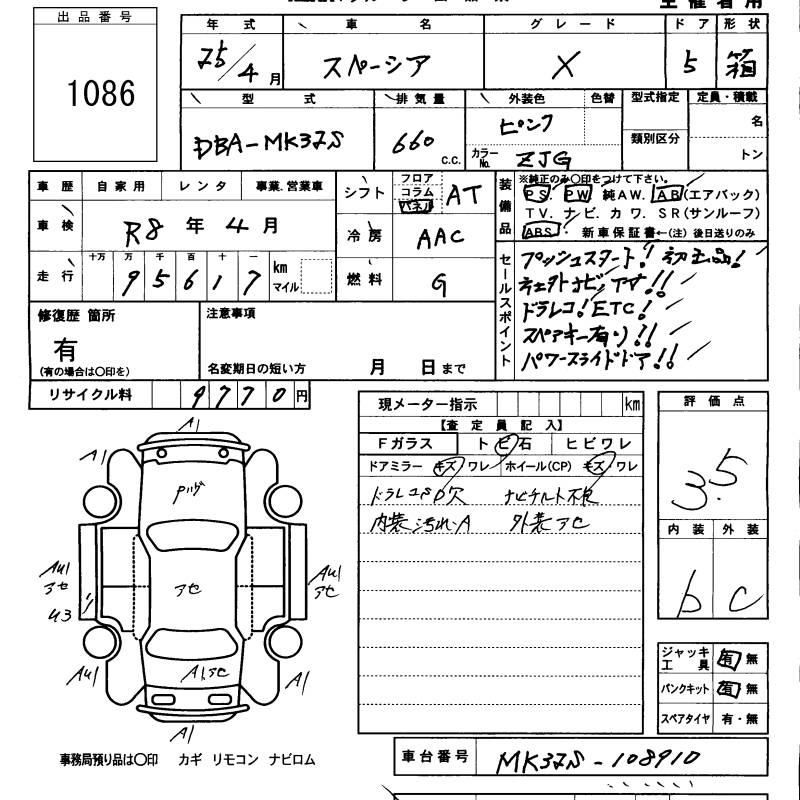 主催者用
出品番号
1086
年式 車名 グレード ドア 形状
25/4月 スペーシア X 5 箱
型式 排気量 外装色 色替 型式指定 定員・積載
DBA-MK32S 660 c.c. ピンク 類別区分 名
カラーNo. ZJG トン
車歴 自家用 レンタ 事業.営業車
車検 R8年4月
走行 十万 万 千 百 十 一
95617 km マイル
シフト フロア コラム パネル AT
冷房 AAC
燃料 G
装備品 ※純正のみ〇印をつけて下さい。
PS. PW 純AW. AB(エアバック)
TV. ナビ. カワ. SR(サンルーフ)
ABS. 新車保証書←(注) 後日送りのみ
セールスポイント
プッシュスタート!
ナビ
ドラレコ! ETC!
スペアキー有り!!
パワースライドドア!!
修復歴 箇所
有
(有の場合は〇印を)
注意事項
名変期日の短い方 月 日まで
リサイクル料 9770円
現メーター指示 km
【査定員記入】
Fガラス トビ石 ヒビワレ
ドアミラー キズ・ワレ ホイール(CP) キズ・ワレ
ドラレコ 穴 ナビチルト不良
内装汚れ・A 外装アセ
評価点
3.5
内装 外装
b c
A1
A1
アセ
AU1 アセ U3
AU1 アセ
AU1
A1アセ
A1
A1
ジャッキ工具 有 無
パンクキット 有 無
スペアタイヤ 有・無
事務局預り品は〇印 カギ リモコン ナビロム
車台番号 MK32S-108910